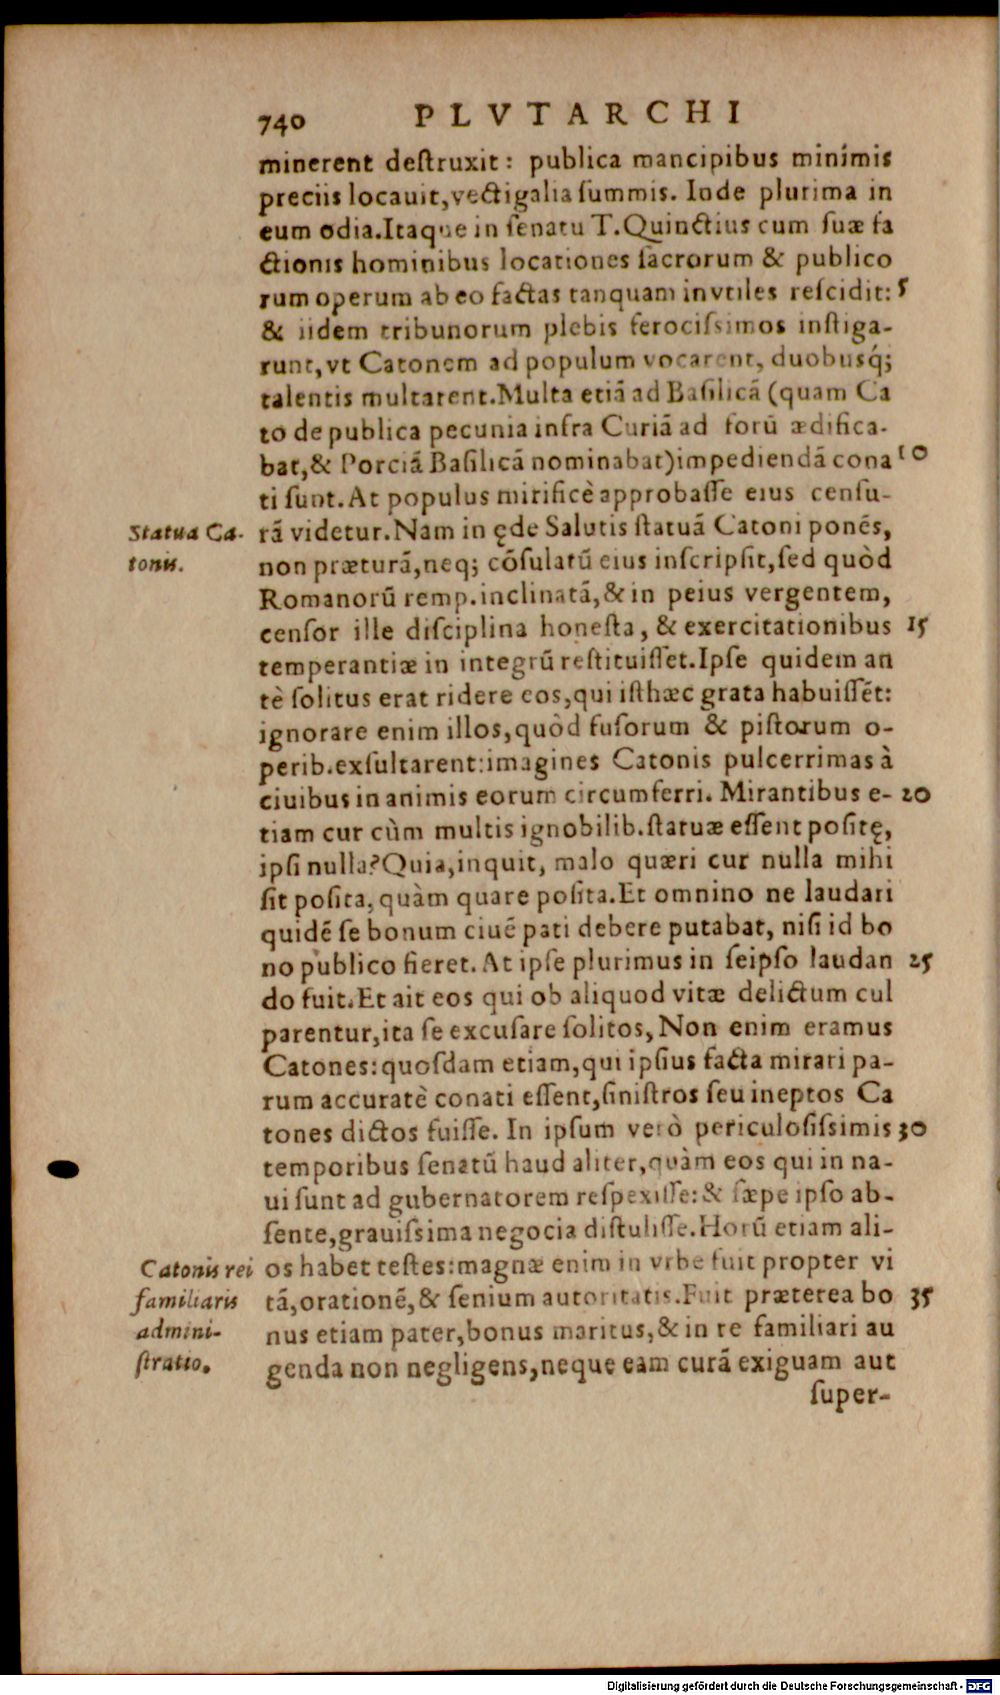 740 PLVTARCHI
minerent destruxit: publica mancipibus minimis
preciis locauit,vectigalia summis. Inde plurima in
eum odia.Itaque in senatu T.Quinctius cum suæ fa
ctionis hominibus locationes sacrorum & publico
rum operum ab eo factas tanquam invtiles rescidit: 5
& iidem tribunorum plebis ferocissimos instiga-
runt,vt Catonem ad populum vocarent, duobusq́;
talentis multarent.Multa etiã ad Basilicã (quam Ca
to de publica pecunia infra Curiã ad forũ ædifica-
bat,& Porciã Basilicã nominabat)impediendã cona 10
ti sunt.At populus mirificè approbasse eius censu-
Statua Ca- rã videtur.Nam in ęde Salutis statuã Catoni ponẽs,
tonis. non præturã,neq; cõsulatũ eius inscripsit,sed quòd
Romanorũ remp.inclinatã,& in peius vergentem,
censor ille disciplina honesta, & exercitationibus 15
temperantiæ in integrũ restituisset.Ipse quidem an
tè solitus erat ridere eos,qui isthæc grata habuissẽt:
ignorare enim illos,quòd fusorum & pistorum o-
perib.exsultarent:imagines Catonis pulcerrimas à
ciuibus in animis eorum circumferri. Mirantibus e- 20
tiam cur cùm multis ignobilib.statuæ essent positę,
ipsi nulla?Quia,inquit, malo quæri cur nulla mihi
sit posita, quàm quare posita.Et omnino ne laudari
quidẽ se bonum ciuẽ pati debere putabat, nisi id bo
no publico fieret. At ipse plurimus in seipso laudan 25
do fuit.Et ait eos qui ob aliquod vitæ delictum cul
parentur,ita se excusare solitos, Non enim eramus
Catones:quosdam etiam,qui ipsius facta mirari pa-
rum accuratè conati essent,sinistros seu ineptos Ca
tones dictos fuisse. In ipsum verò periculosissimis 30
temporibus senatũ haud aliter,quàm eos qui in na-
ui sunt ad gubernatorem respexisse:& sæpe ipso ab-
sente,grauissima negocia distulisse.Horũ etiam ali-
Catonis rei os habet testes:magnæ enim in vrbe fuit propter vi
familiaris tã,orationẽ,& senium autoritatis.Fuit præterea bo 35
admini- nus etiam pater,bonus maritus,& in re familiari au
stratio. genda non negligens,neque eam curã exiguam aut
super-
Digitalisierung gefördert durch die Deutsche Forschungsgemeinschaft - DFG